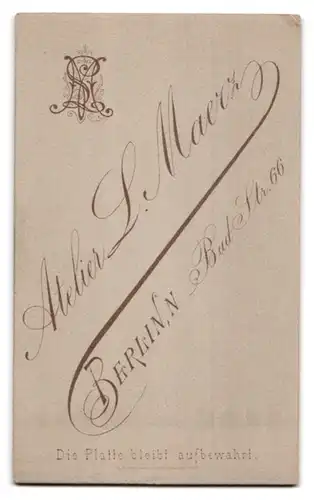 Atelier L. Maerz
BERLIN, N Bad Str. 66
Die Platte bleibt aufbewahrt.